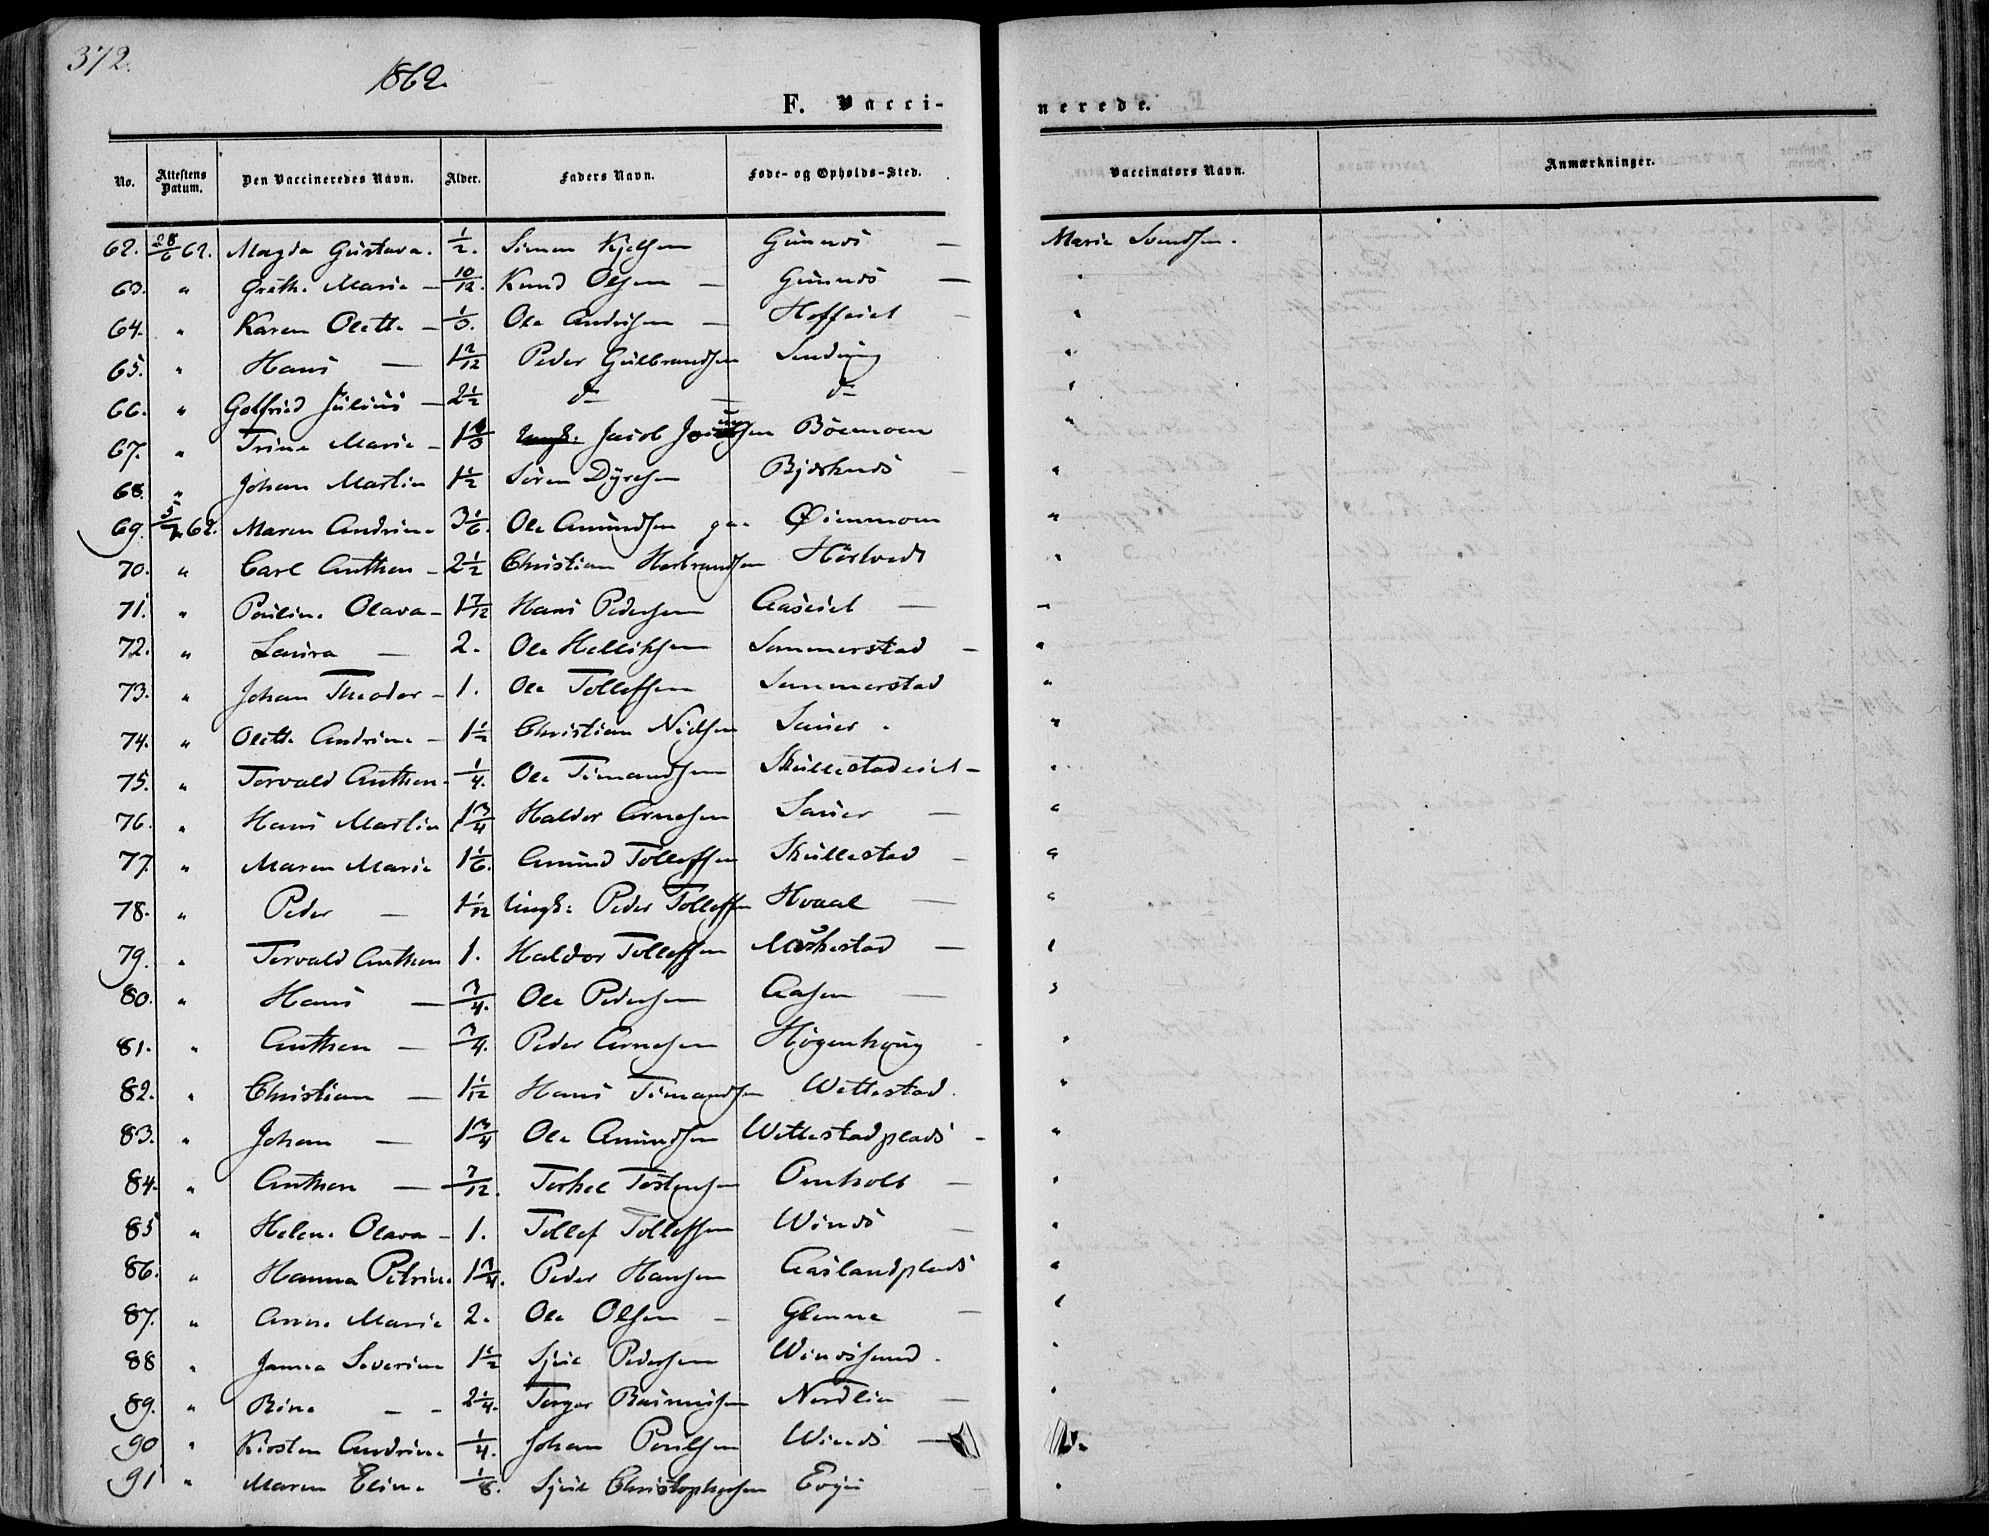 372.
1862.
F. Vacci-
nerede.
No. Attestens Datum. Den Vaccineredes Navn. Alder. Faders Navn. Føde- og Opholds-Sted. Vaccinators Navn. Anmærkninger.
62. 28/6 62. Magda Gustava. 1/2. Simen Kjelsen — Marie Svendsen.
63. " Grethe Marie — 10/12. Knud Olsen —
64. " Karen Olette — Ole Andersen — Hoffeiet —
65. " Hans — 1 2/12 Peder Gulbrandsen
66. " Gotfried Julius — 2 1/2 do — do
67. " Trine Marie — Jacob Bøemoen
68. " Johan Martin 1 1/2 Søren Dyresen —
69. 62. Maren Andrine 3 1/6. Ole Amundsen Øienmoen
70. " Carl Anthon — 2 1/2 Christian Herbrandsen
71. " Pauline Olava — 1 7/12 Hans Pedersen Aaseiet —
72. " Laura — 2. Ole Helliksen Sommerstad —
73. " Johan Theodor — 1. Ole Tollefsen Sommerstad
74. " Olette Andrine — 1 1/2 Christian Nielsen Sauer.
75. " Torvald Anthon — 1/4. Ole Simandsen Skullestadeiet —
76. " Hans Martin 1 3/4 Haldor Arnesen Sauer —
77. " Maren Marie 1 1/6. Amund Tollefsen Skullestad —
78. " Peder — 1 1/12 Ungk: Peder Tollefsen Hvaal —
79. " Torvald Anthon 1. Haldor Tollefsen —
80. " Hans — 3/4. Ole Pedersen Aasen —
81. " Anthon — 3/4. Peder Arnesen
82. " Christian — 1 1/12 Hans Simandsen Wettestad.
83. " Johan — 1 3/4 Ole Amundsen Wettestadplads —
84. " Anthon — 7/12. Torkel Torstensen Omholt —
85 " Helene Olava — 1. Tollef Tollefsen —
86. " Hanna Petrine 1 3/4. Peder Hansen Aaslandplads
87. " Anne Marie 2. Ole Olsen — Glenne —
88 " Janna Severine 1 1/2 Sjul Pedersen
89. " Rine — — 2 1/4. Torger Rasmusen Nordlia —
90 " Kirsten Andrine 1/4. Johan Poulsen —
91 " Maren Eline 1/8. Sjul Christophersen Evju